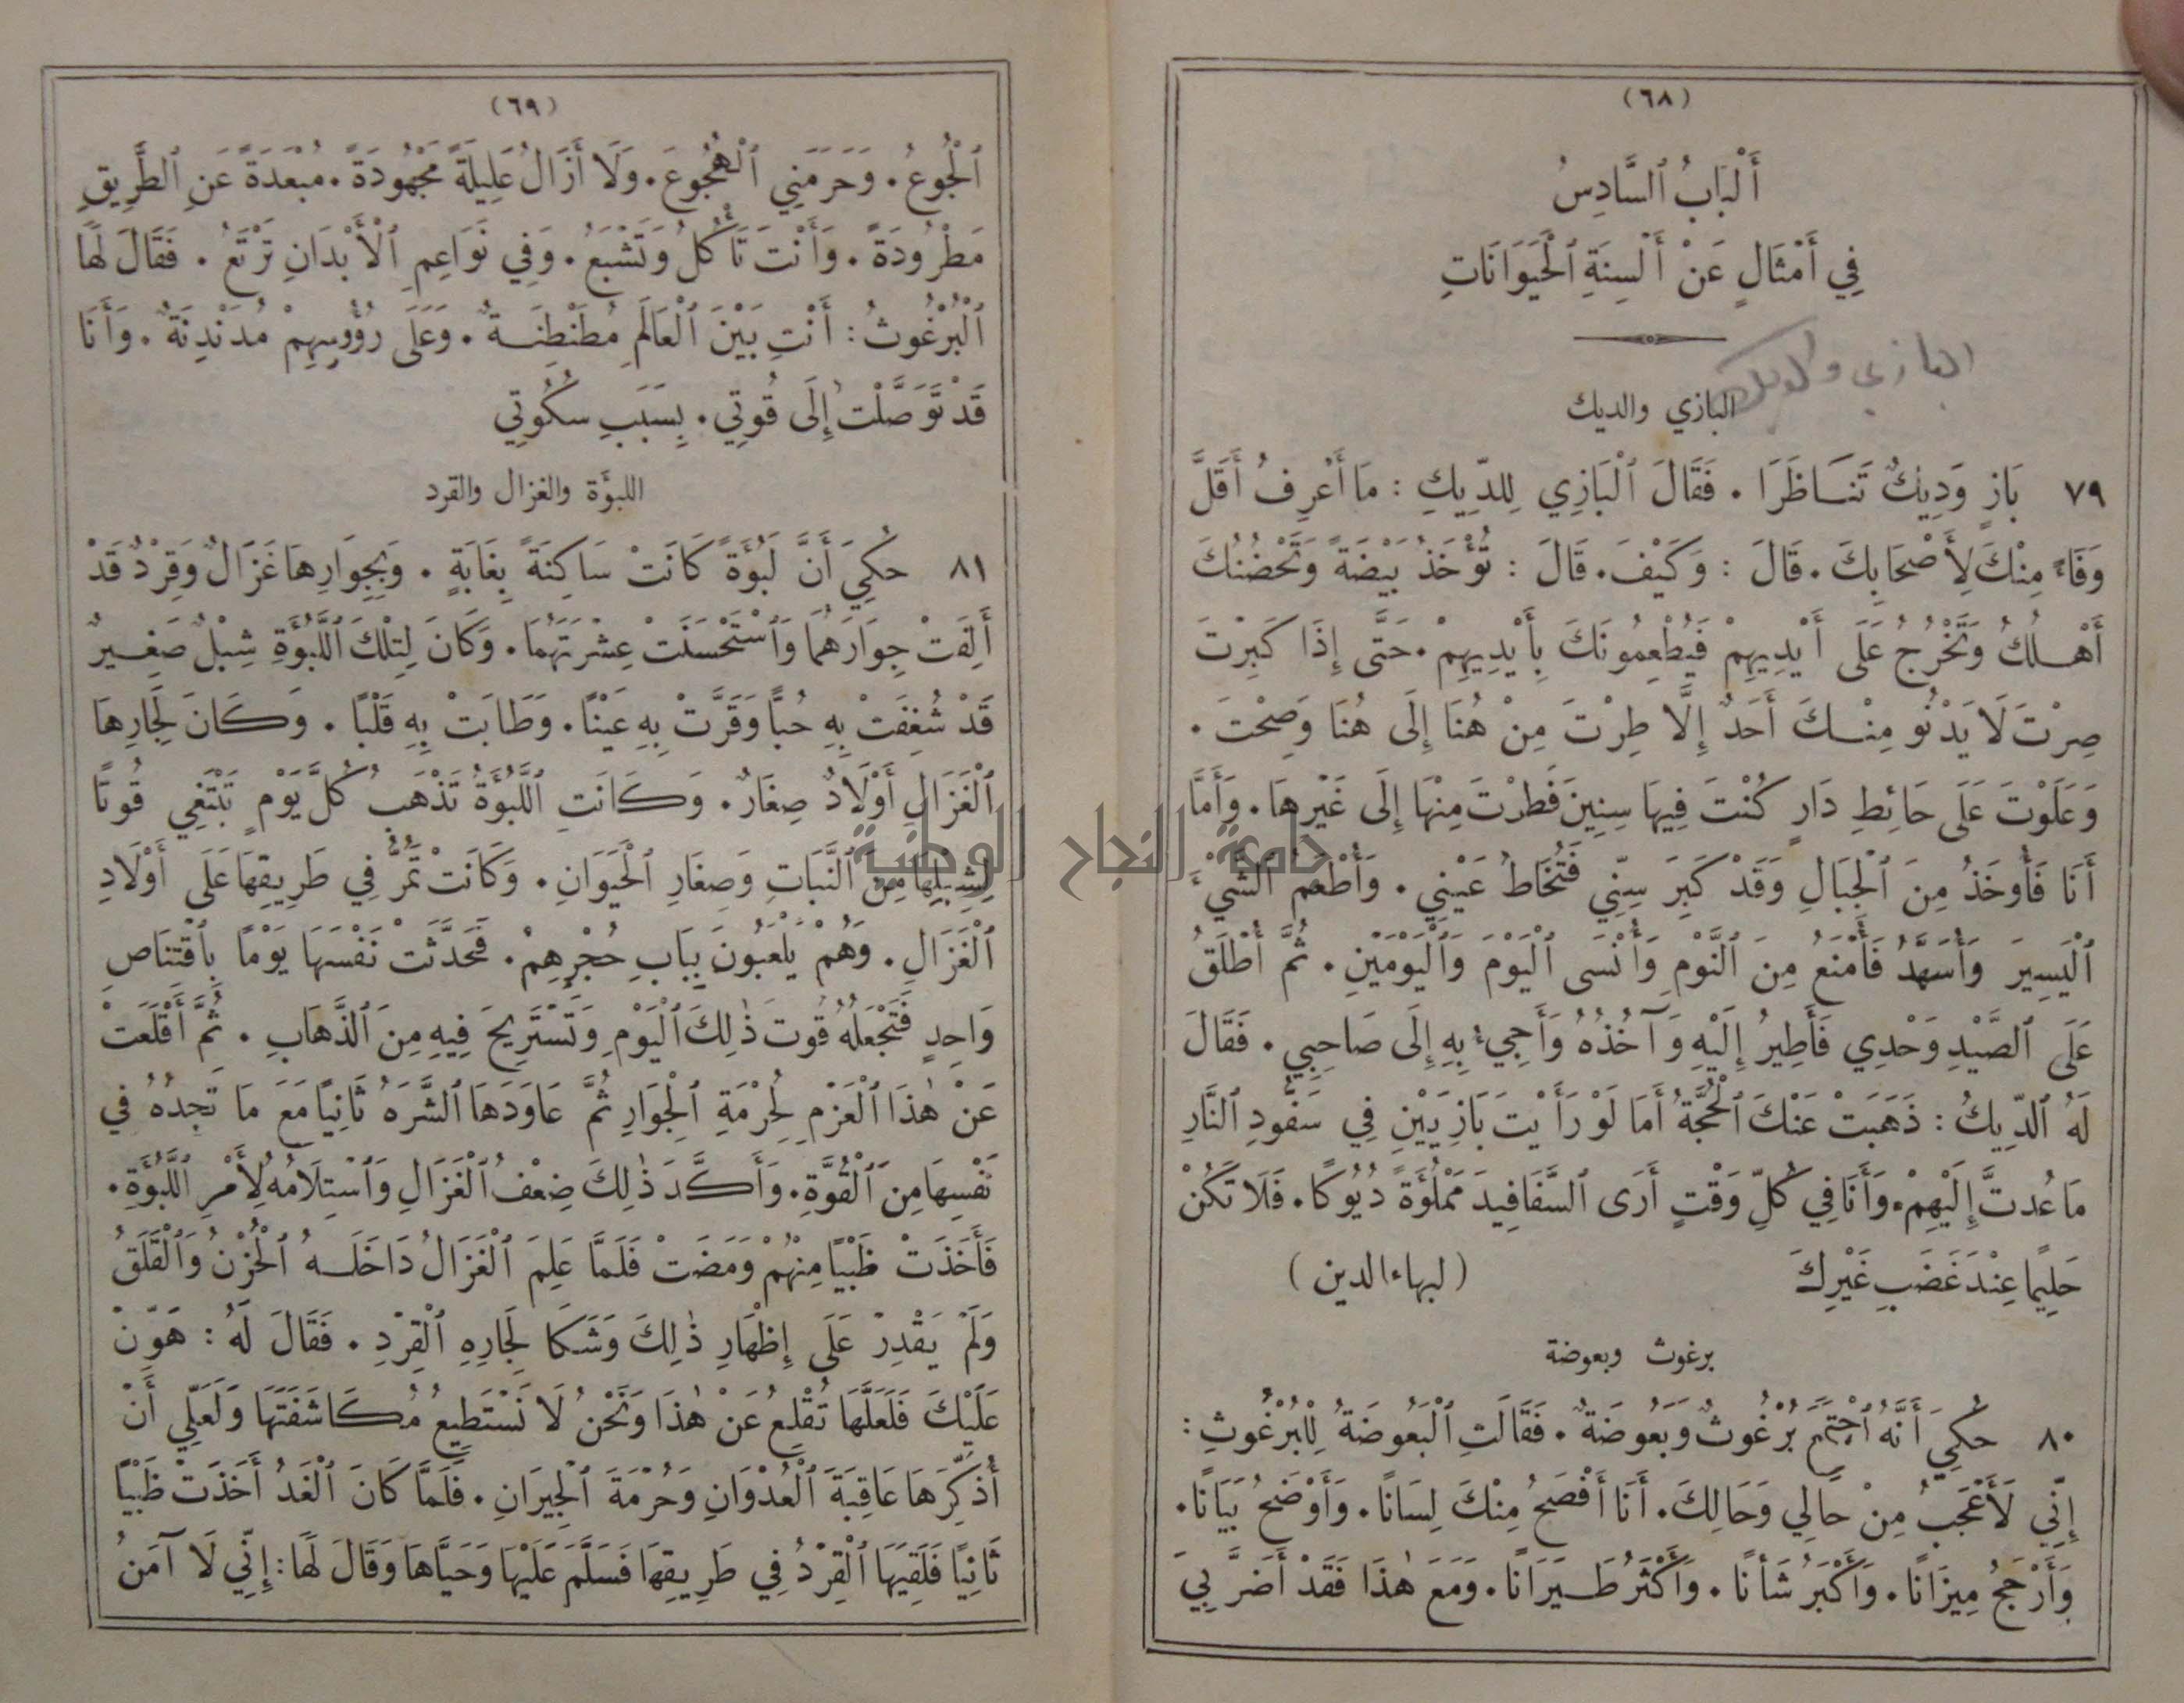 (٦٨)
أَلْبَابُ ٱلسَّادِسُ
فِي أَمْثَالٍ عَنْ أَلْسِنَةِ ٱلْحَيَوَانَاتِ
البازي والديك
البازي والديك
٧٩ بَازٍ وَدِيكٌ تَنَاظَرَا . فَقَالَ ٱلْبَازِي لِلدِّيكِ : مَا أَعْرِفُ أَقَلَّ
وَفَاءً مِنْكَ لِأَصْحَابِكَ . قَالَ : وَكَيْفَ . قَالَ : تُؤْخَذُ بَيْضَةً وَتَحْضُنُكَ
أَهْلُكُ وَتَخْرُجُ عَلَى أَيْدِيهِمْ فَيُطْعِمُونَكَ بِأَيْدِيهِمْ . حَتَّى إِذَا كَبِرْتَ
صِرْتَ لَا يَدْنُو مِنْكَ أَحَدٌ إِلَّا طِرْتَ مِنْ هُنَا إِلَى هُنَا وَصِحْتَ .
وَعَلَوْتَ عَلَى حَائِطِ دَارٍ كُنْتَ فِيهَا سِنِينَ فَطِرْتَ مِنْهَا إِلَى غَيْرِهَا . وَأَمَّا
أَنَا فَأُوخَذُ مِنَ ٱلْجِبَالِ وَقَدْ كَبِرَ سِنِّي فَتُخَاطُ عَيْنِي . وَأُطْعَمُ ٱلشَّيْءَ
ٱلْيَسِيرَ وَأُسَهَّدُ فَأُمْنَعُ مِنَ ٱلنَّوْمِ وَأُنْسَى ٱلْيَوْمَ وَٱلْيَوْمَيْنِ . ثُمَّ أُطْلَقُ
عَلَى ٱلصَّيْدِ وَحْدِي فَأَطِيرُ إِلَيْهِ وَآخُذُهُ وَأَجِيءُ بِهِ إِلَى صَاحِبِي . فَقَالَ
لَهُ ٱلدِّيكُ : ذَهَبَتْ عَنْكَ ٱلْحُجَّةُ أَمَا لَوْ رَأَيْتَ بَازِيَيْنِ فِي سَفُّودِ ٱلنَّارِ
مَا عُدتَّ إِلَيْهِمْ . وَأَنَا فِي كُلِّ وَقْتٍ أَرَى ٱلسَّفَافِيدَ مَمْلُؤَةً دُيُوكًا . فَلَا تَكُنْ
حَلِيمًا عِنْدَ غَضَبِ غَيْرِكَ (لبهاء الدين)
برغوث وبعوضة
٨٠ حُكِيَ أَنَّهُ ٱجْتَمَعَ بُرْغُوثٌ وَبَعُوضَةٌ . فَقَالَتِ ٱلْبَعُوضَةُ لِلْبُرْغُوثِ :
إِنِّي لَأَعْجَبُ مِنْ حَالِي وَحَالِكَ . أَنَا أَفْصَحُ مِنْكَ لِسَانًا . وَأَوْضَحُ بَيَانًا .
وَأَرْجَحُ مِيزَانًا . وَأَكْبَرُ شَأْنًا . وَأَكْثَرُ طَيَرَانًا . وَمَعَ هٰذَا فَقَدْ أَضَرَّ بِيَ
(٦٩)
ٱلْجُوعُ . وَحَرَمَنِي ٱلْهُجُوعَ . وَلَا أَزَالُ عَلِيلَةً مَجْهُودَةً . مُبْعَدَةً عَنِ ٱلطَّرِيقِ
مَطْرُودَةً . وَأَنْتَ تَأْكُلُ وَتَشْبَعُ . وَفِي نَوَاعِمِ ٱلْأَبْدَانِ تَرْتَعُ . فَقَالَ لَهَا
ٱلْبُرْغُوثُ : أَنْتِ بَيْنَ ٱلْعَالَمِ مُطَنْطِنَةٌ . وَعَلَى رُؤُوسِهِمْ مُدَنْدِنَةٌ . وَأَنَا
قَدْ تَوَصَّلْتُ إِلَى قُوتِي . بِسَبَبِ سُكُوتِي
اللبؤة والغزال والقرد
٨١ حُكِيَ أَنَّ لَبُؤَةً كَانَتْ سَاكِنَةً بِغَابَةٍ . وَبِجِوَارِهَا غَزَالٌ وَقِرْدٌ قَدْ
أَلِفَتْ جِوَارَهُمَا وَٱسْتَحْسَنَتْ عِشْرَتَهُمَا . وَكَانَ لِتِلْكَ ٱللَّبُؤَةِ شِبْلٌ صَغِيرٌ
قَدْ شُغِفَتْ بِهِ حُبًّا وَقَرَّتْ بِهِ عَيْنًا . وَطَابَتْ بِهِ قَلْبًا . وَكَانَ لِجَارِهَا
ٱلْغَزَالِ أَوْلَادٌ صِغَارٌ . وَكَانَتِ ٱللَّبُؤَةُ تَذْهَبُ كُلَّ يَوْمٍ تَبْتَغِي قُوتًا
لِشِبْلِهَا مِنَ ٱلنَّبَاتِ وَصِغَارِ ٱلْحَيَوَانِ . وَكَانَتْ تَمُرُّ فِي طَرِيقِهَا عَلَى أَوْلَادِ
ٱلْغَزَالِ . وَهُمْ يَلْعَبُونَ بِبَابِ حُجْرِهِمْ . فَحَدَّثَتْ نَفْسَهَا يَوْمًا بِٱقْتِنَاصِ
وَاحِدٍ فَتَجْعَلُهُ قُوتَ ذٰلِكَ ٱلْيَوْمِ وَتَسْتَرِيحَ فِيهِ مِنَ ٱلذَّهَابِ . ثُمَّ أَقْلَعَتْ
عَنْ هٰذَا ٱلْعَزْمِ لِحُرْمَةِ ٱلْجِوَارِ ثُمَّ عَاوَدَهَا ٱلشَّرَهُ ثَانِيًا مَعَ مَا تَجِدُهُ فِي
نَفْسِهَا مِنَ ٱلْقُوَّةِ . وَأَكَّدَ ذٰلِكَ ضِعْفُ ٱلْغَزَالِ وَٱسْتِلَامُهُ لِأَمْرِ ٱللَّبُؤَةِ .
فَأَخَذَتْ ظَبْيًا مِنْهُمْ وَمَضَتْ فَلَمَّا عَلِمَ ٱلْغَزَالُ دَاخَلَهُ ٱلْحُزْنُ وَٱلْقَلَقُ
وَلَمْ يَقْدِرْ عَلَى إِظْهَارِ ذٰلِكَ وَشَكَا لِجَارِهِ ٱلْقِرْدِ . فَقَالَ لَهُ : هَوِّنْ
عَلَيْكَ فَلَعَلَّهَا تُقْلِعُ عَنْ هٰذَا وَنَحْنُ لَا نَسْتَطِيعُ مُكَاشَفَتَهَا وَلَعَلِّي أَنْ
أُذَكِّرَهَا عَاقِبَةَ ٱلْعُدْوَانِ وَحُرْمَةَ ٱلْجِيرَانِ . فَلَمَّا كَانَ ٱلْغَدُ أَخَذَتْ ظَبْيًا
ثَانِيًا فَلَقِيَهَا ٱلْقِرْدُ فِي طَرِيقِهَا فَسَلَّمَ عَلَيْهَا وَحَيَّاهَا وَقَالَ لَهَا : إِنِّي لَا آمَنُ
جامعة النجاح الوطنية